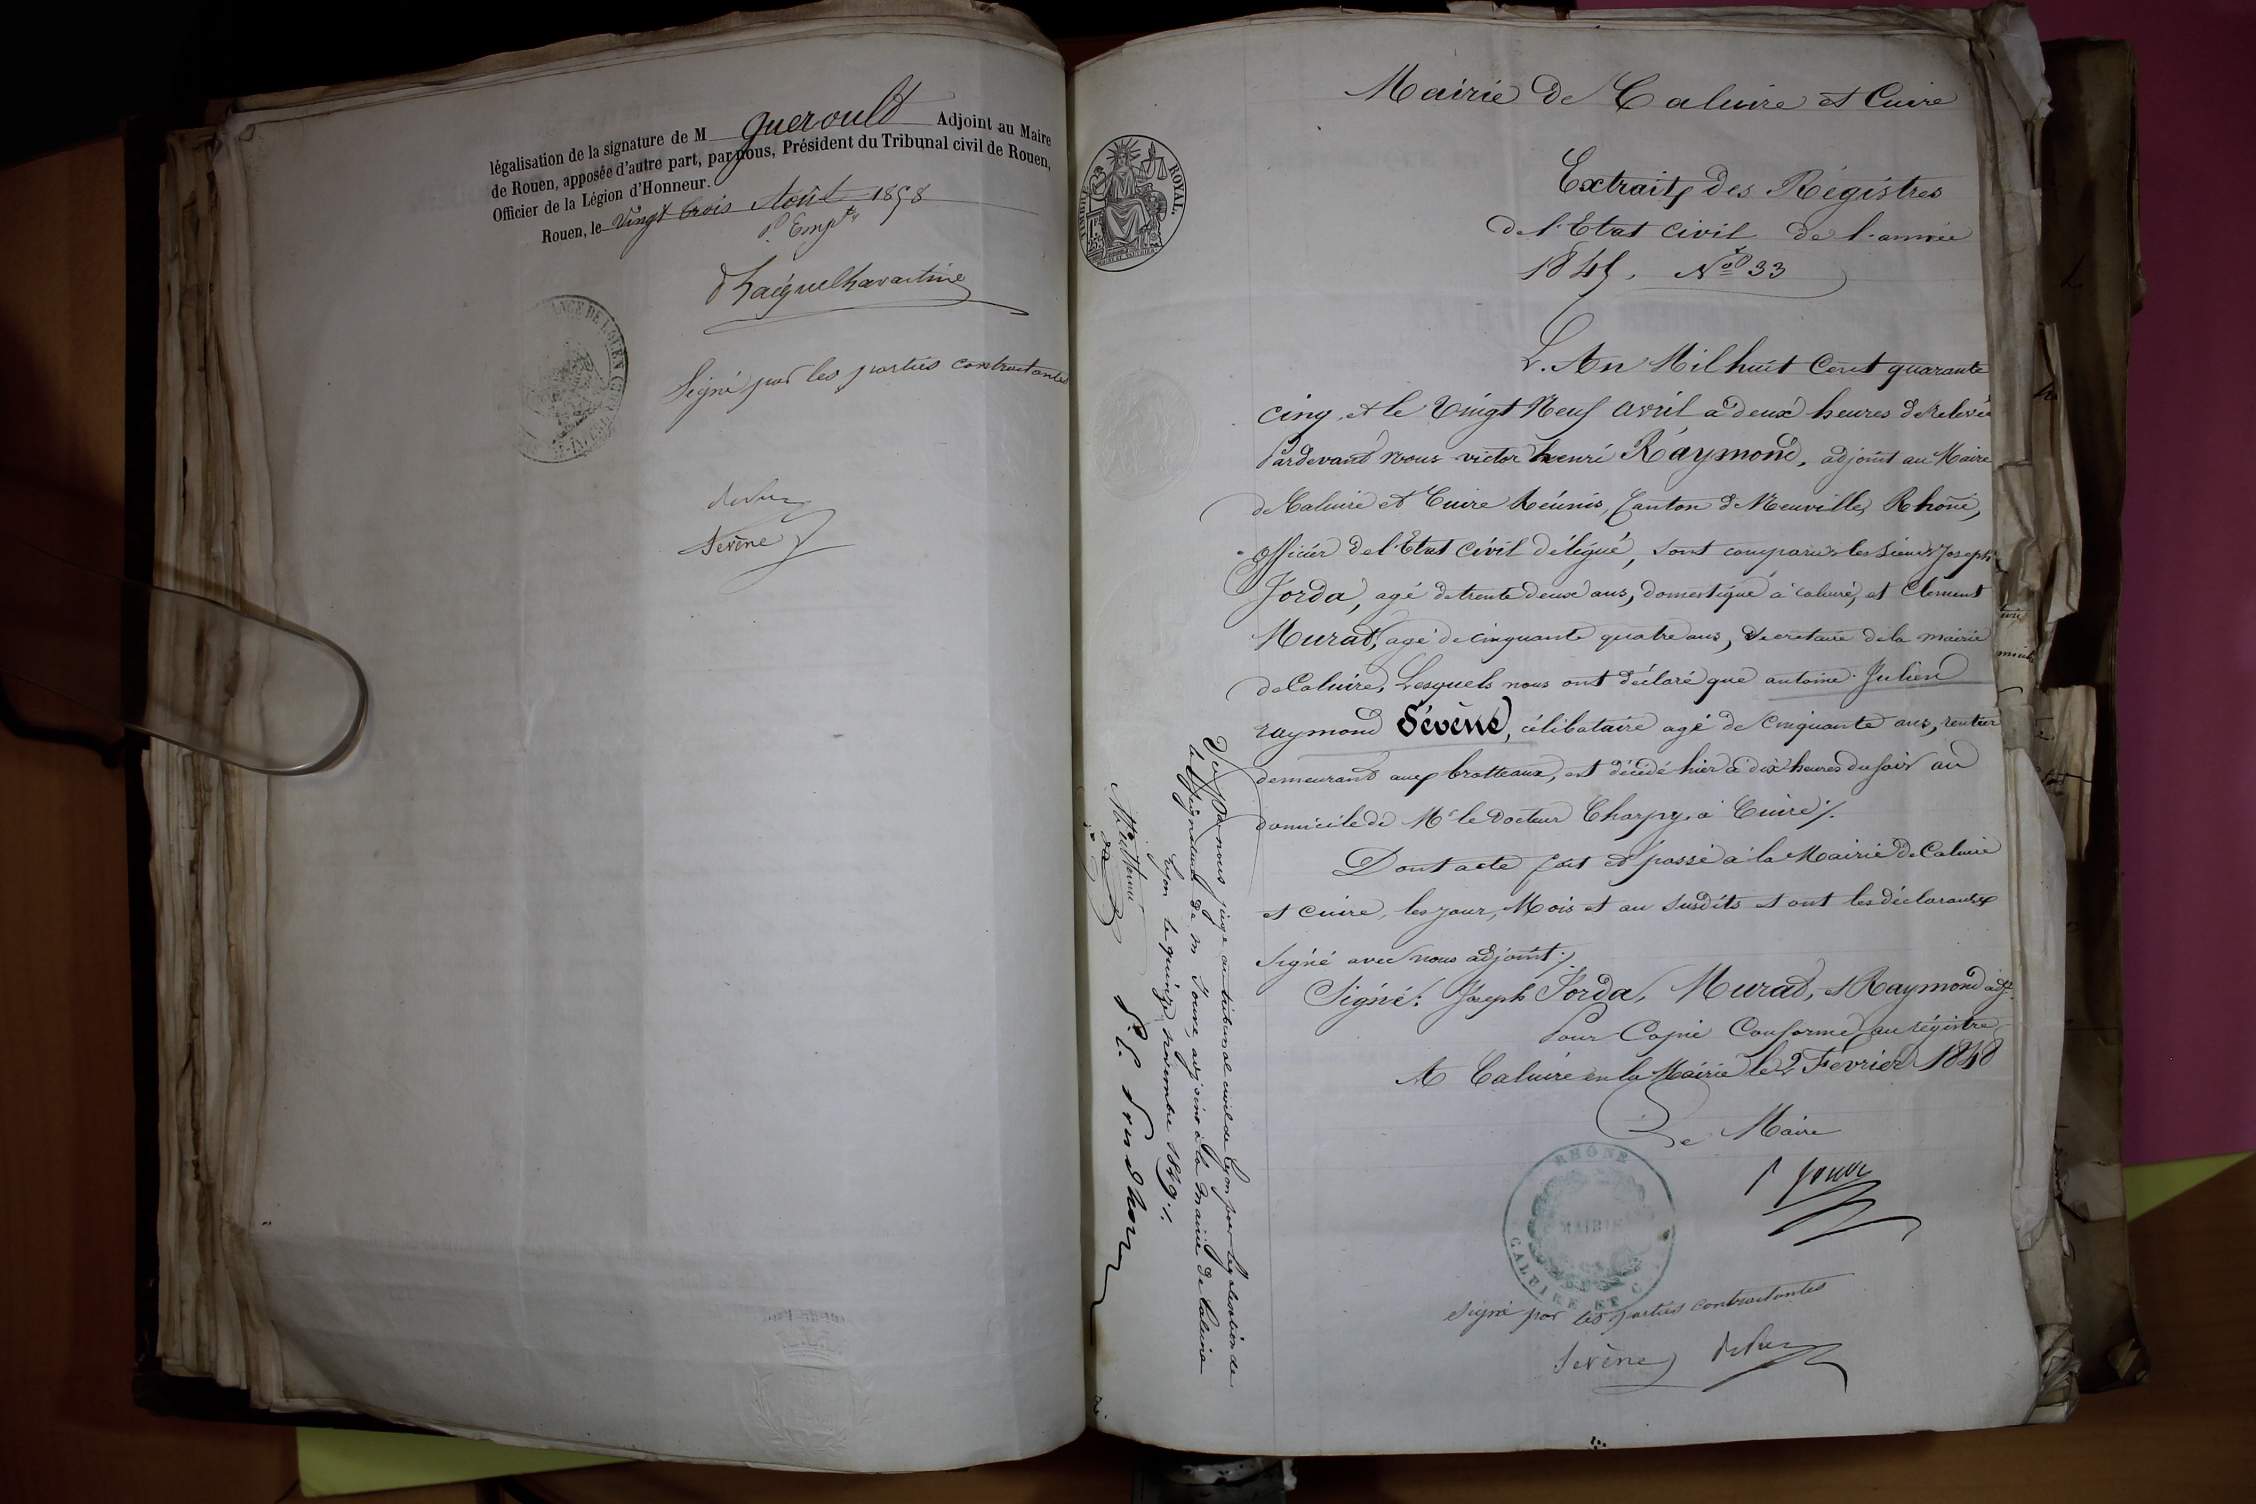 légalisation de la signature de M Gueroult Adjoint au Maire
de Rouen, apposée d'autre part, par nous, Président du Tribunal civil de Rouen,
Officier de la Légion d'Honneur.
Rouen, le Vingt trois Août 1858
Signé par les parties contractantes
Sevène
Mairie de Caluire et Cuire
TIMBRE ROYAL
Extrait des Régistres
de l'Etat Civil de l'année
1845. No 33
L'An Mil huit Cent quarante
cinq et le Vingt Neuf avril à deux heures de Relevée
Pardevant Nous victor henri Raymond, adjoint au Maire
de Caluire et Cuire Réunis, Canton de Neuville, Rhône,
officier de l'Etat Civil délégué, sont comparus les Sieurs Joseph
Jorda, agé de trente deux ans, domestique à caluire, et Clement
Murat, agé de cinquante quatre ans, Secretaire de la mairie
de Caluire, Lesquels nous ont déclaré que antoine Julien
raymond Sévène, célibataire agé de Cinquante ans, rentier
demeurant aux brotteaux, est décédé hier à dix heures du soir au
domicile de Mr le Docteur Charpy, à Cuire ./.
Dont acte fait et passé à la Mairie de Caluire
et cuire, les jour, Mois et an susdits et ont les déclarants
signé avec nous adjoint ./.
Signé: Joseph Jorda, Murat, et Raymond adjt
Pour Copie Conforme au régistre
A Caluire en la Mairie le 2 Février 1848
Le Maire
RHÔNE
MAIRIE
CALUIRE ET C
Signé par les parties contractantes
Sevène
Vu par nous juge au tribunal civil de Lyon pour légalisation de
la signature de m Joure, adjoint à la mairie de Caluire
Lyon le quinze novembre 1849 ./.